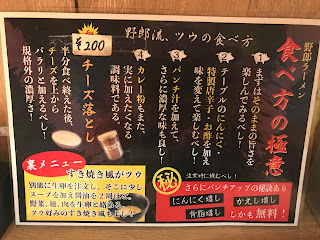 野郎ラーメン
食べ方の極意
野郎流、ツウの食べ方
1
まずはそのままの旨さを
じっくり味わうべし!
2
テーブルのにんにく
特製唐辛子、お酢を加え
味を変えて楽しむべし!
3
パンチ汁を加えて、
さらに濃厚な味も良し!
4
カレー粉もまた、
実に加えたくなる
調味料である。
¥200
チーズ落とし
半分食べ終えた後、
チーズを上から
パラリと加えるべし!
規格外の濃厚さ!
裏メニュー
すき焼き風がツウ
別皿に生卵を注文し、そこに少し
スープを加え醤油を2周ほど、
野菜、麺、肉を生卵に絡める
ツウ好みのすき焼き風もよし!
㊙
注文時に挑むべし!
さらにパンチアップの秘訣あり
にんにく増し
かえし増し
背脂増し
しかも無料!